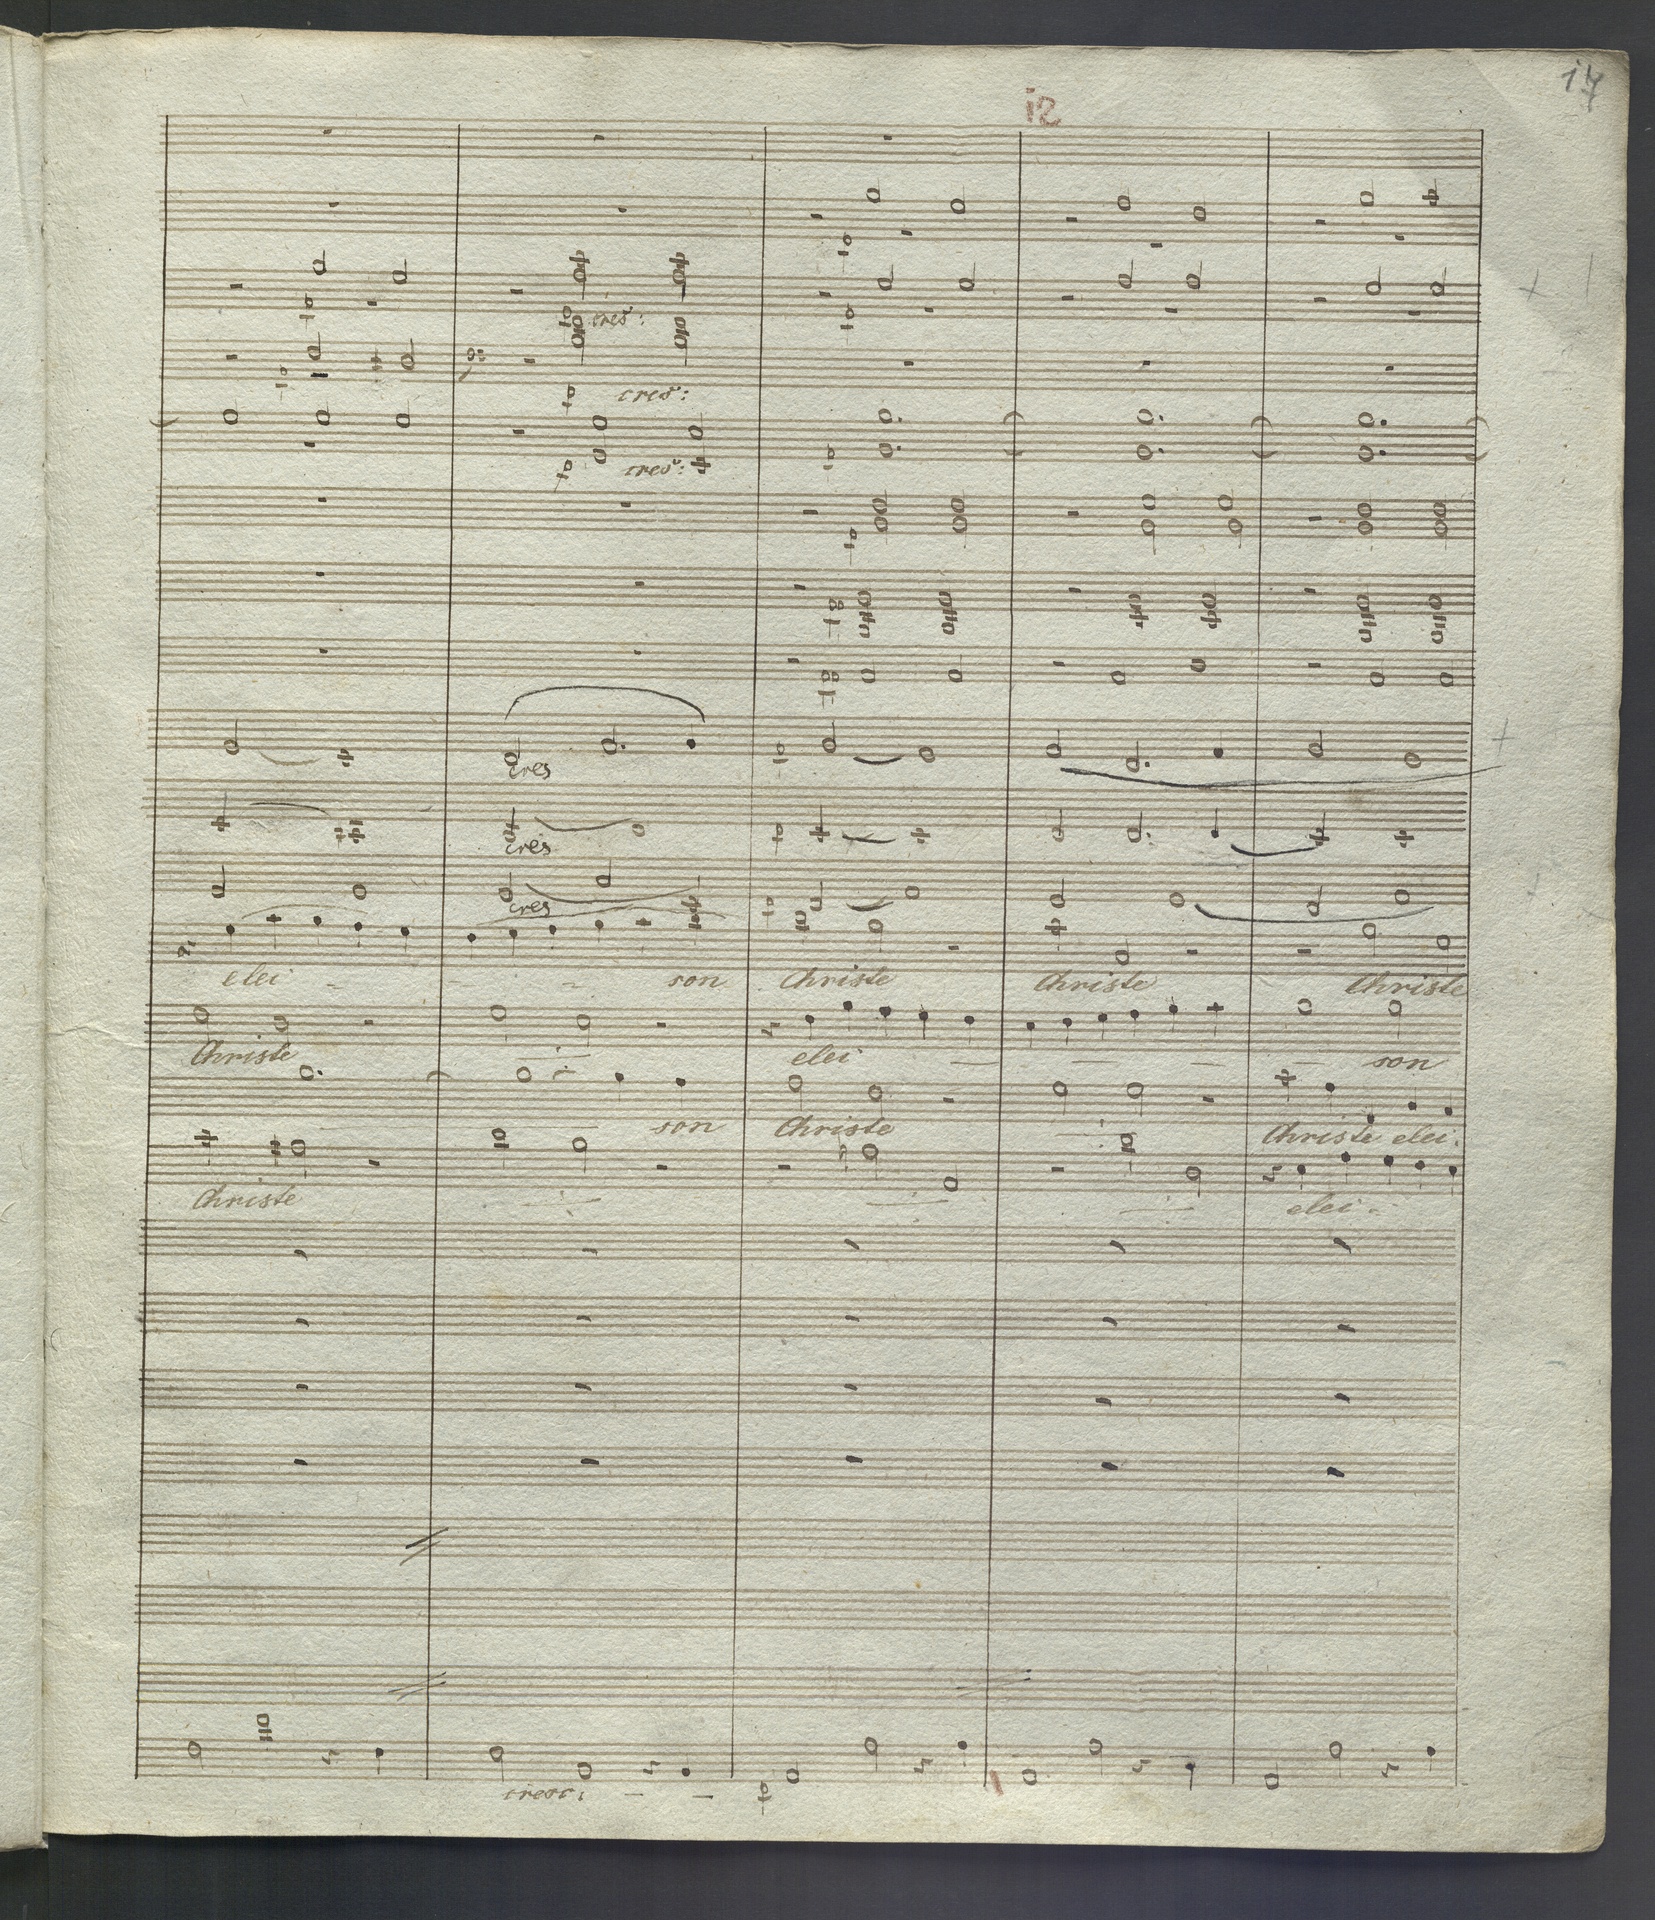 17
12
cres:
cres:
cres:
cres
cres
cres
elei - - - son Christe Christe Christe
Christe elei son
son Christe Christe elei.
Christe elei -
cresc: - -